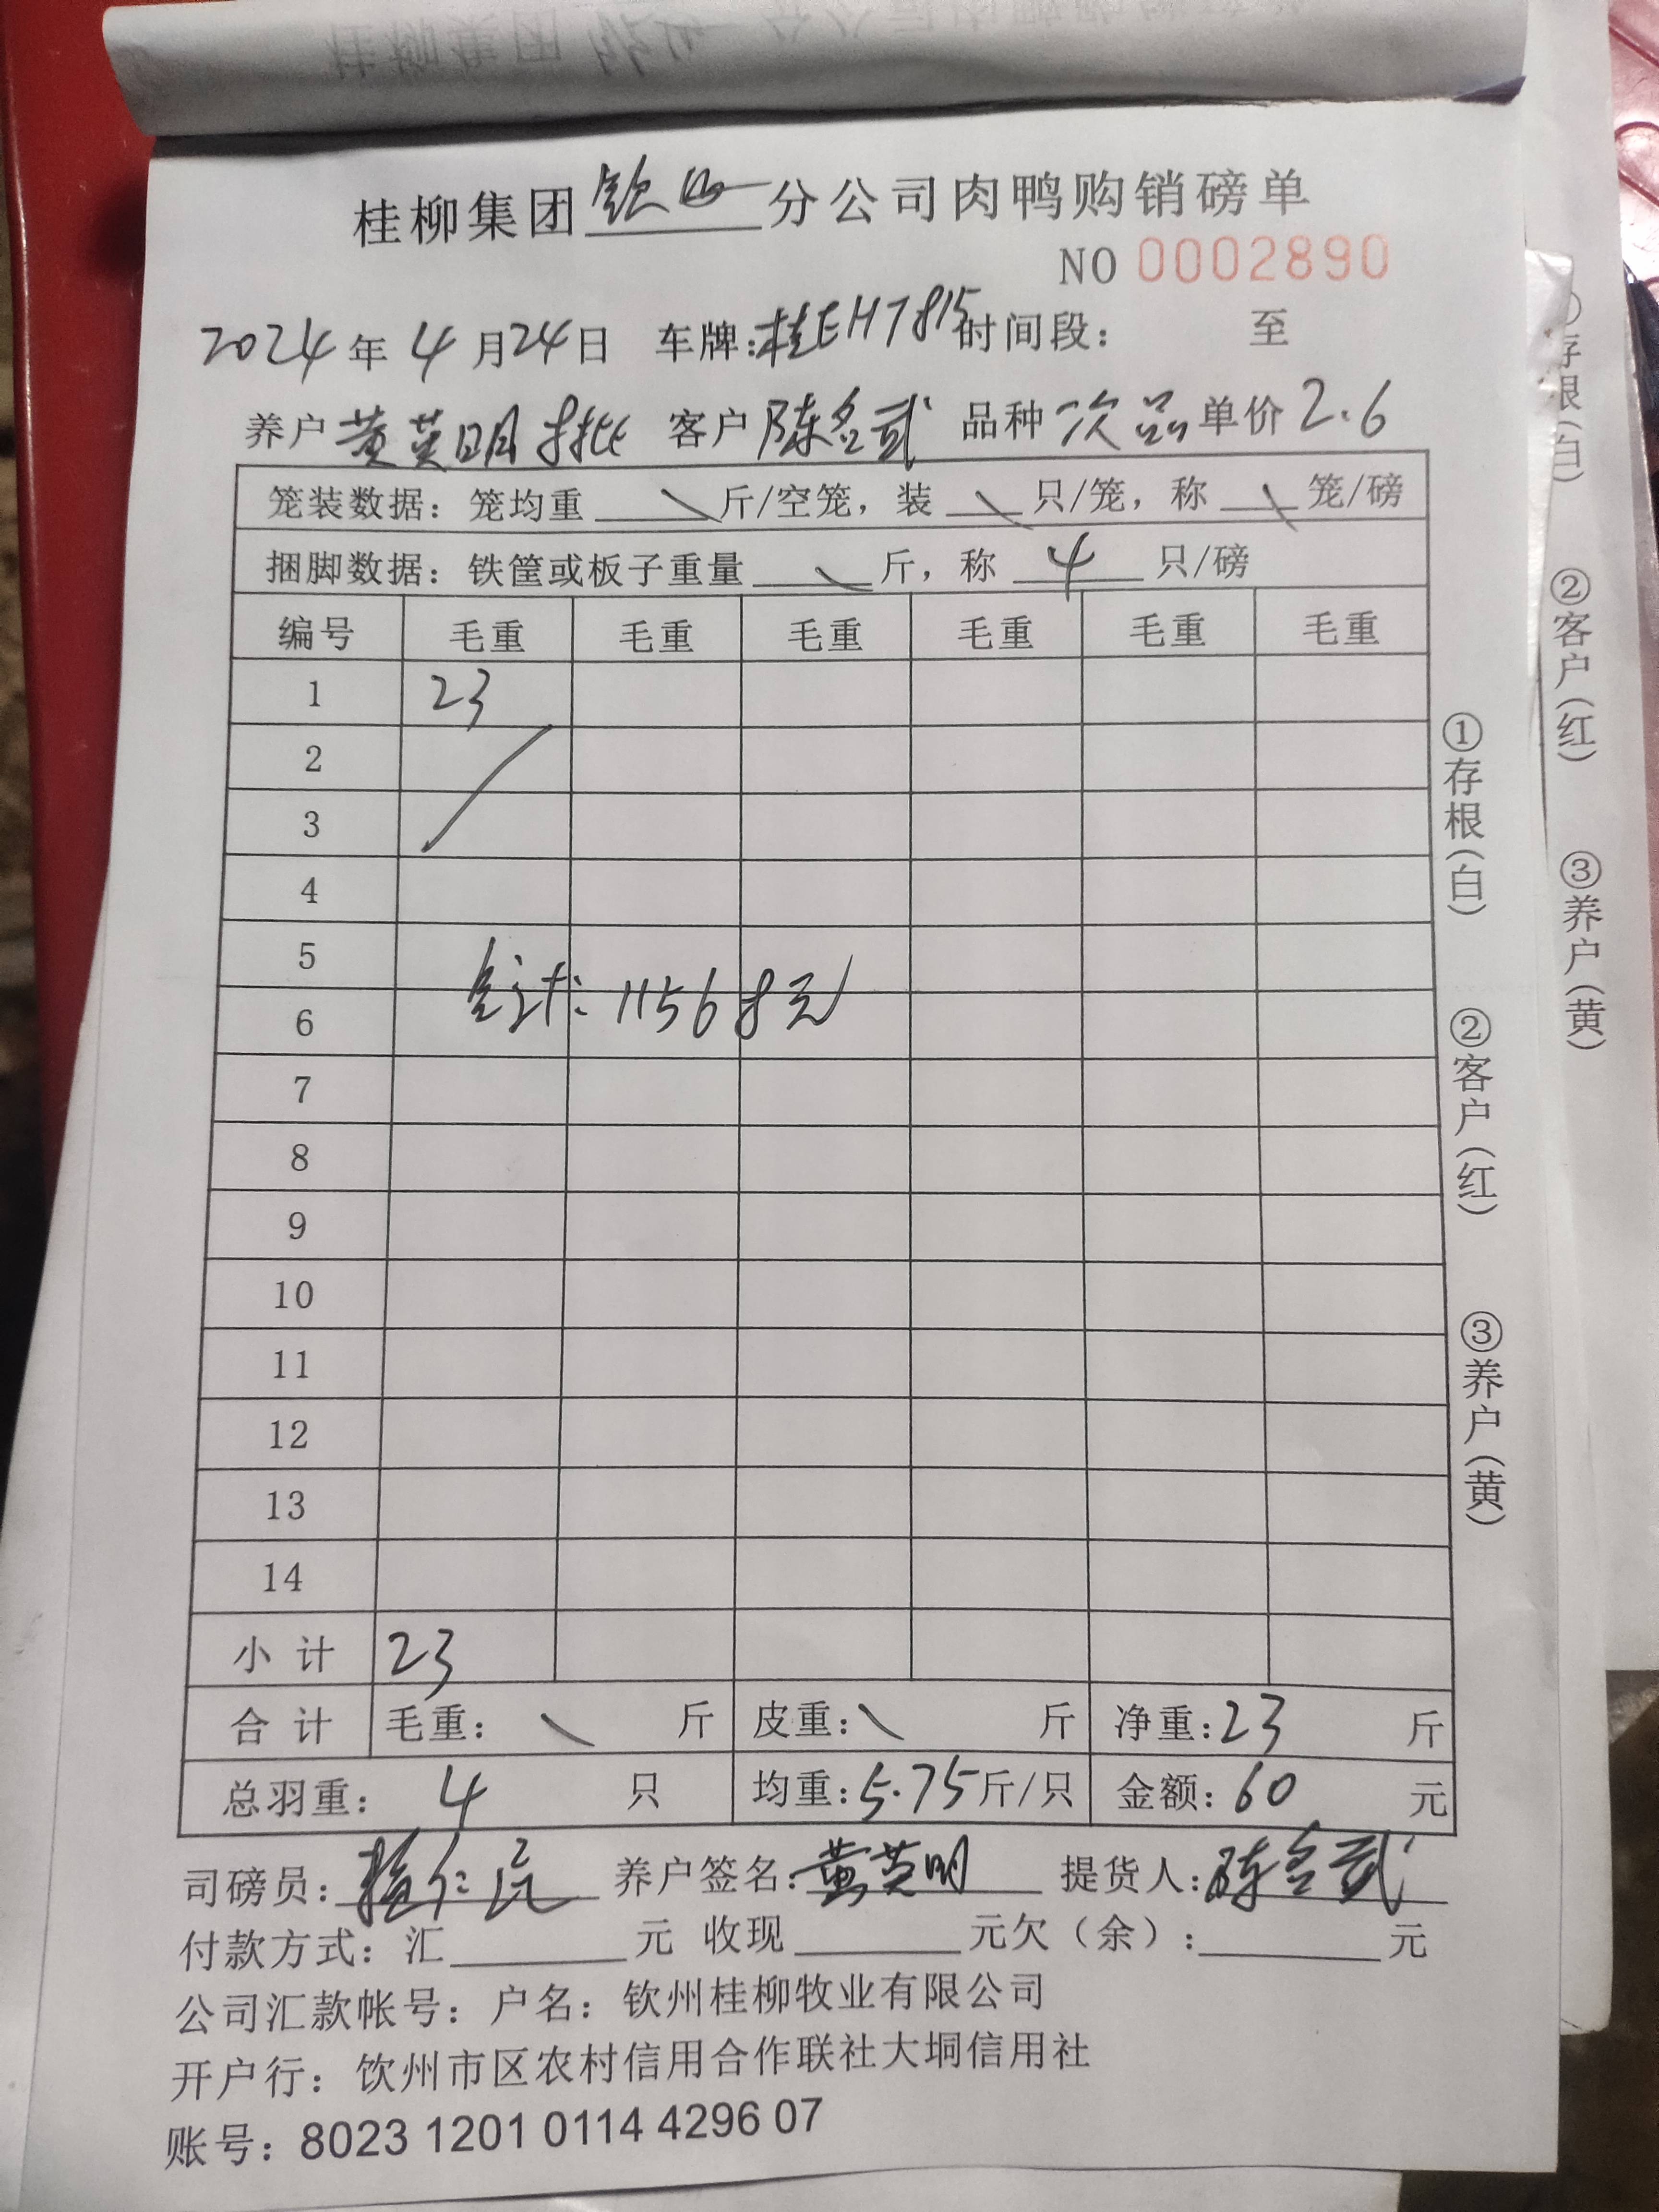 桂柳集团 钦州 分公司肉鸭购销磅单
NO 0002890
2024年 4月24日 车牌:桂EH7815 时间段: 至
养户 黄英明 客户 陈名武 品种 次品 单价 2.6
笼装数据: 笼均重 \ 斤/空笼, 装 \ 只/笼, 称 \ 笼/磅
捆脚数据: 铁筐或板子重量 \ 斤, 称 4 只/磅
编号 毛重 毛重 毛重 毛重 毛重 毛重
1 23
2
3
4
5
合计: 11568元
6
7
8
9
10
11
12
13
14
小计 23
合计 毛重: \ 斤 皮重: \ 斤 净重: 23 斤
总羽重: 4 只 均重: 5.75 斤/只 金额: 60 元
司磅员: 养户签名: 黄英明 提货人: 陈名武
付款方式: 汇 元 收现 元欠(余): 元
公司汇款帐号: 户名: 钦州桂柳牧业有限公司
开户行: 钦州市区农村信用合作联社大垌信用社
账号: 8023 1201 0114 4296 07
①存根(白) ②客户(红) ③养户(黄)
存根(白) ②客户(红) ③养户(黄)